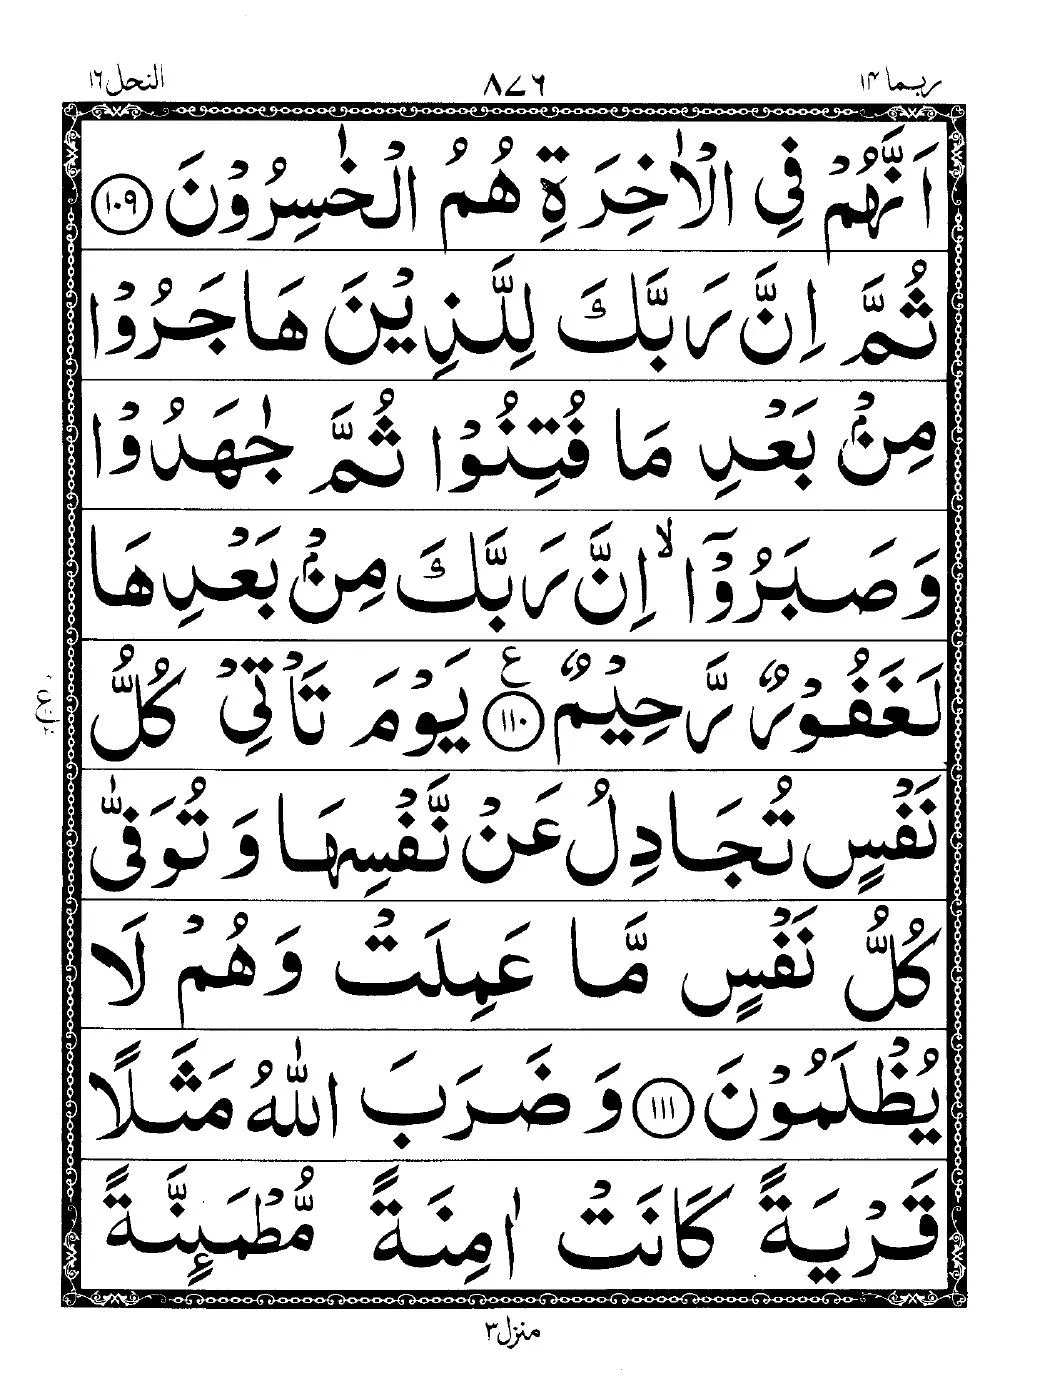 ربما ١٤
٨٧٦
النحل ١٦
اَنَّهُمْ فِی الْاٰخِرَةِ هُمُ الْخٰسِرُوْنَ ١٠٩
ثُمَّ اِنَّ رَبَّكَ لِلَّذِیْنَ هَاجَرُوْا
مِنْۢ بَعْدِ مَا فُتِنُوْا ثُمَّ جٰهَدُوْا
وَصَبَرُوْۤا ۙ اِنَّ رَبَّكَ مِنْۢ بَعْدِهَا
لَغَفُوْرٌ رَّحِیْمٌ ١١٠ ع یَوْمَ تَاْتِیْ كُلُّ
نَفْسٍ تُجَادِلُ عَنْ نَّفْسِهَا وَتُوَفّٰی
كُلُّ نَفْسٍ مَّا عَمِلَتْ وَهُمْ لَا
یُظْلَمُوْنَ ١١١ وَضَرَبَ اللّٰهُ مَثَلًا
قَرْیَةً كَانَتْ اٰمِنَةً مُّطْمَىِٕنَّةً
منزل ٣